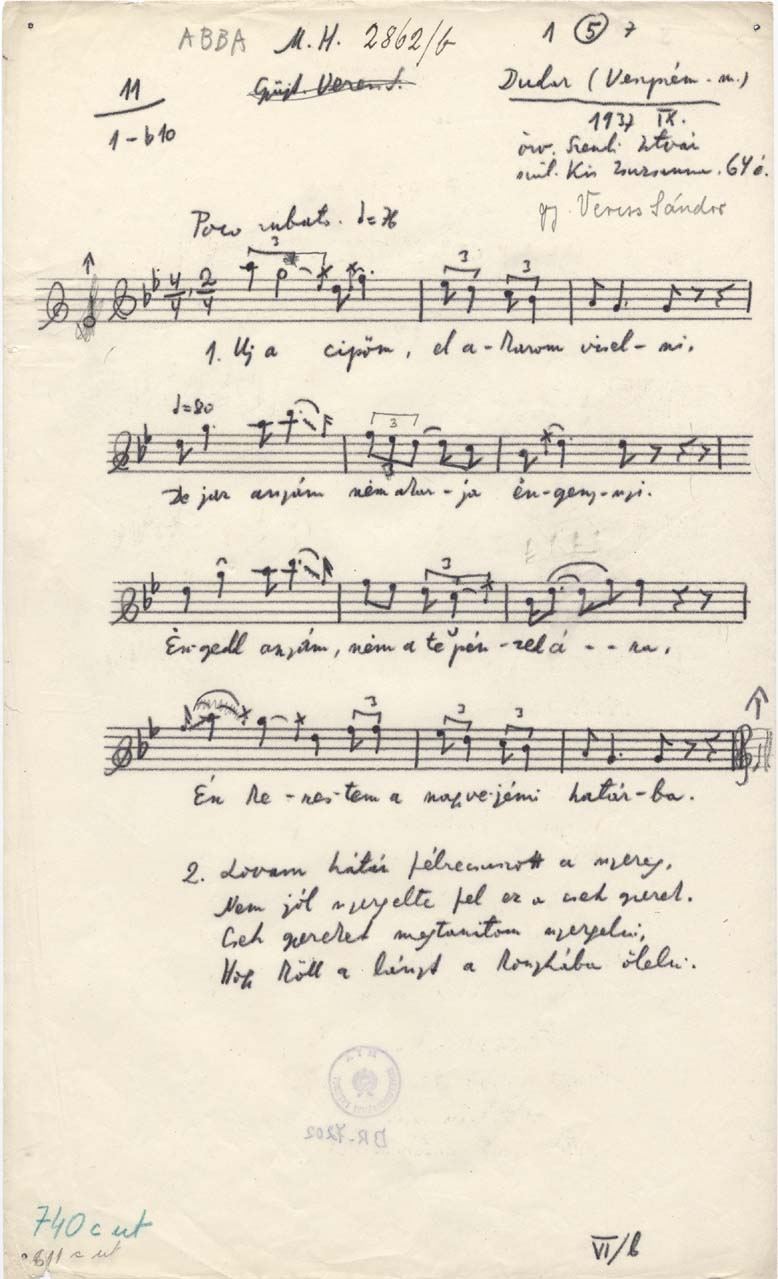 ABBA M. H. 2862/b 1 5 7
11 Gyűjt. Veress S. Dudar (Veszprém-m.)
1-b10 1937 IX.
özv. Szendi István
szül. Kis Zsuzsanna. 64 é.
gy. Veress Sándor
Poco rubato. ♩=76
3
3 3
4/4, 2/4
1. Uj a cipőm, el a-karom visel-ni.
♩=80
3
De jaz anyám nëm akar-ja ën-genynyi.
3
Ën-gedd anyám, nëm a te pén-zed á - - ra,
3
3 3
Én ke-res-tem a nagyve-jëmi határ-ba.
2. Lovam hátán félrecsuszott a nyereg,
Nem jól nyergelte fel ez a cseh gyerek.
Cseh gyereket megtanitom nyergelni,
Hogy köll a lányt a konyhába ölelni.
BR-7202
740 c ut
811 c ut
VI/b